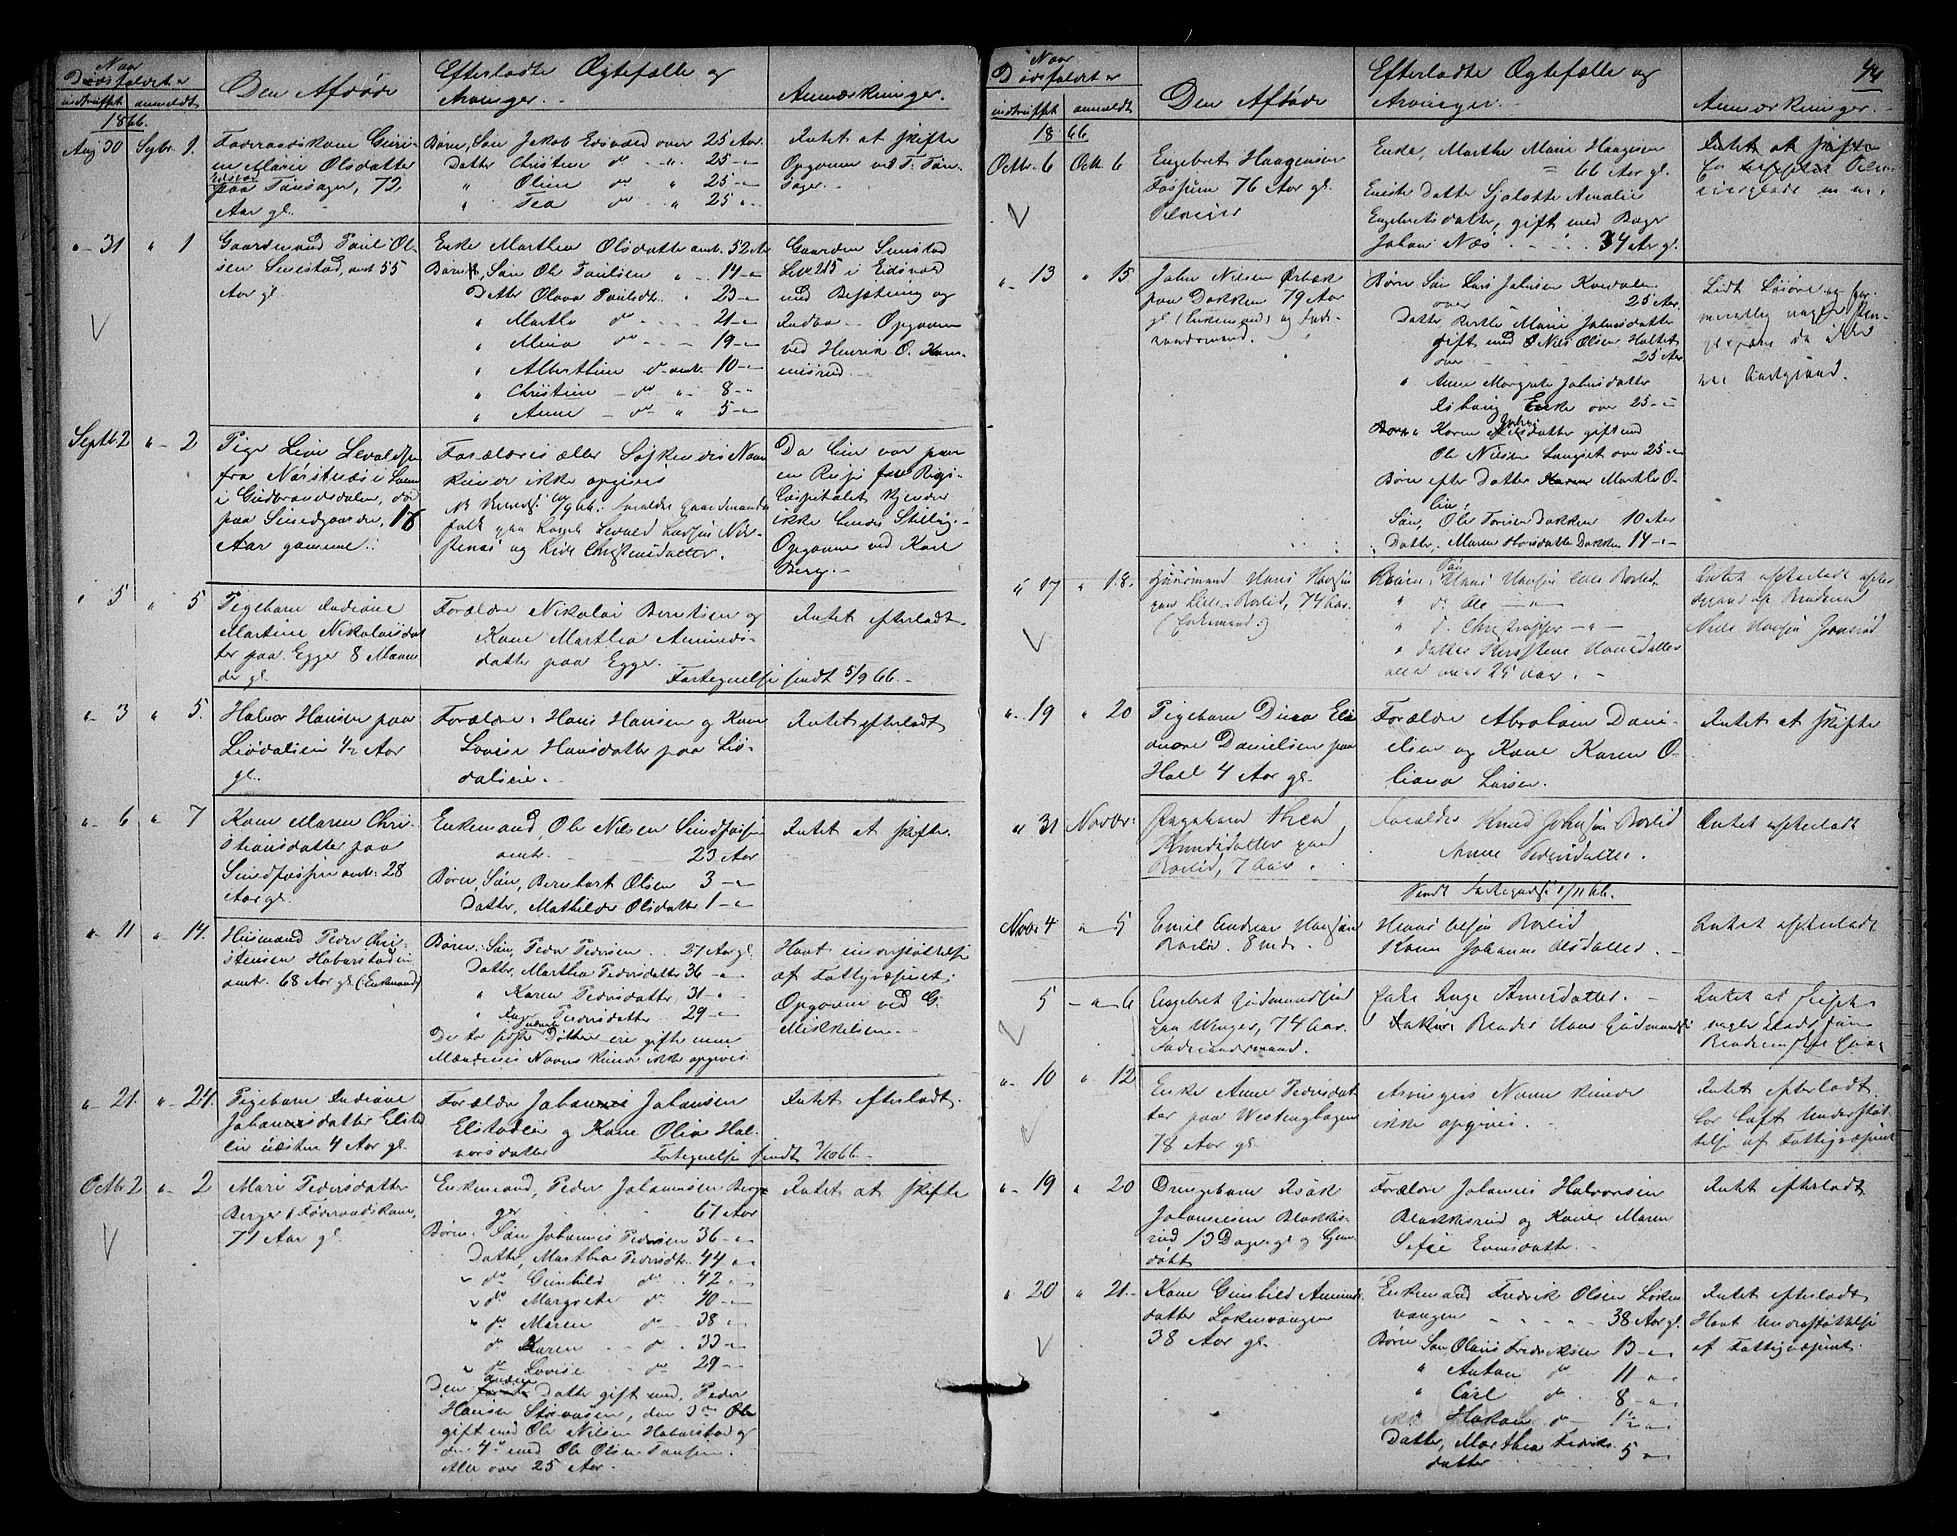 Naar
Dødsfaldet er
indtruffet anmeldt
Den Afdøde
Efterladte Ægtefælle og
Arvinger.
Anmærkninger.
1866.
Aug 30 Septbr. 1.
Føderaadskone Guri-
ne Marie Olsdatter
Eidsvold
paa Tønsager, 72
Aar gl.
Børn, Søn Jakob Eidsvold over 25 Aar.
Datter Christine do " 25 -"-
" Oline do " 25 -"-
" Tea do " 25 -"-
Intet at skifte
Opgaven ved T. Tøn-
sager.
"- 31 " 1
Gaardmand Paul Ol-
sen Simestad, omt 55
Aar gl.
Enke Marthea Olsdatter omt. 52 Aar
Børn, Søn Ole Paulsen " 14 -"-
Datter Olava Paulsdt. " 23 -"-
" Marthe do 21 -"-
" Mina do 19 -"-
" Alberthine do omt. 10 -"-
" Christine do " 8 -"-
" Anne do " 5 -"-
Gaarden Simstad
i Eidsvold
med Besætning og
Indbo. Opgaven
ved Henrik O.
Septb. 2 "- 2
Pige Live
fra i Lom
i Gudbrandsdalen, død
paa 18
Aar gammel.
Forældres eller Søskendes Navn
kunde ikke opgives
og
Da hun var paa
en Rejse fra Rigs-
hospitalet kjender
ikke hendes Stilling.
Opgaven ved Karl
Berg.
" 5 " 5
Pigebarn Indiane
Martine Nikolaisdat
ter paa Egger 8 Maane
der gl.
Forældre Nikolai Berntsen og
Kone Marthea Amunds-
datter paa Egger.
Intet efterladt
Fortegnelse sendt 5/9 66.
"- 3 " 5.
Halvor Hansen paa
Liødalseie 1/2 Aar
gl.
Forældre, Hans Hansen og Kone
Lovise Hansdatter paa Liø-
dalseie.
Intet efterladt
"- 6 " 7
Kone Maren Chri-
stiansdatter paa
omt: 28
Aar gl.
Enkemand, Ole Nilsen
omtr. 23 Aar
Børn, Søn, Bernhart Olsen 3 -"-
Datter, Mathilde Olsdatter 1 -"-
Intet at skifte.
"- 11 "- 14.
Husmand Peder Chri-
stensen Haberstadeie
omtr. 68 Aar gl. (Enkemand)
Børn: Søn, Peder Pedersen 27 Aar gl.
Datter, Marthea Pedersdatter 36 -"-
" Karen Pedersdatter 31 -"-
" Inger Pedersdatter 29 -"-
De to første Døttre ere gifte men
Mændenes Navne kunde ikke opgives
Havt understøttelse
af Fattigvæsenet;
Opgaven ved G.
Mikkelsen.
"- 21. "- 24.
Pigebarn Indiane
Johannesdatter Elstad
eie næsten 4 Aar gl.
Forældre Johannes Johansen
Elstadeie og Kone Olia Hal-
vorsdatter
Intet efterladt.
Fortegnelse sendt 1/10 66.
Octbr. 2 "- 2
Mari Pedersdatter
Berger, Føderaadskone,
71 Aar gl.
Enkemand, Peder Johannesen Ber-
ger 67 Aar
Børn: Søn Johannes Pedersen 36 -"-
Datter, Marthea Pedersdt. 44 -"-
" do Gunhild do 42 -"-
" do Margrete do 40 -"-
" do Maren do 38 -"-
do Karen do 33 -"-
" do Lovise do 29 -"-
anden
Den første Datter gift med, Peder
Hansen den 3die Ole
gift med Ole Nilsen Haberstad og
den 4de med Ole Olsen
Alle over 25 Aar.
Intet at skifte
Naar
Dødsfaldet er
indtruffet anmeldt
Den Afdøde
Efterladte Ægtefælle og
Arvinger.
Anmærkninger.
44
1866.
Octbr. 6 Octb. 6
Engebret Haagensen
Fossum 76 Aar gl.
Enke, Marthe Marie Haagensen
66 Aar gl.
Eneste Datter Sjalotte Amalie
Engebretsdatter, gift med Bager
Johan Næs 34 Aar gl.
Intet at skifte
"- 13 " 15
John Nilsen Ørbæk
paa Dokken 79 Aar
gl. (Enkemand) og Føde-
raadsmand.
Børn Søn Lars Johnsen
over 25 Aar.
Datter Berthe Marie Johnsdatter
gift med Nils Olsen Holtet
over 25 Aar
" Anne Margrete Johnsdatter
Enke over 25 -"-
Karen Johnsdatter gift med
Ole Nilsen Langset over 25 -"-
Børn efter Datter Marthe O-
line;
Søn, Ole Torsen Dokken 10 Aar
Datter, Maren Dokken 14 -"-
Lidt Løsøre og for-
"- 17 " 18.
Huusmand Hans Hansen
paa Lille-Roslid, 74 Aar.
(Enkemand)
Børn: Søn Hans Hansen Lille Roslid.
" do Ole -"-
" do Christopher -"-
" datter Kirstine Hansdatter
alle over 25 Aar.
Intet efterladt efter
opgave af Broderen
Niels Hansen
"- 19 " 20
Pigebarn Dina Ele
onore Danielsen paa
Hoel 4 Aar gl.
Forældre Abraham Dani-
elsen og Kone Karen O-
liana Larsen.
Intet at skifte
" 31 Novbr.
Pigebarn Thea
Knudsdatter paa
Roslid, 7 Aar.
Forældre Knud Johnsen Roslid
Anne Pedersdatter.
Intet efterladt
Sendt Fortegnelse 1/11 66.
Novbr. 4 "- 5
Emil Andreas Hansen
Roslid. 8 mdr.
Hans Olsen Roslid
Kone Johanne Olsdatter.
Intet efterladt
5 -"- 6
Engebret Gudmundsen
paa Wenger, 74 Aar.
Føderaadsmand.
Enke Inge Arnesdatter.
Broder Hans Gudmundsen
Intet at skifte
"- 10 "- 12
Enke Anne Pedersdat
ter paa Westenghagen
78 Aar gl.
Arvinges Navn kunde
ikke opgives.
Intet efterladt
har havt Understøt-
telse af Fattigvæsenet
"- 19 " 20
Drengebarn Isak
Johannesen Blakkis-
rud 13 Dage gl. og hjem-
døbt
Forældre Johannes Halvorsen
Blakkisrud og Kone Maren
Sofie Evensdatter.
Intet efterladt
" 20 " 21.
Kone Gunhild Amunds-
datter Løkenvangen
38 Aar gl.
Enkemand Fredrik Olsen Løken
vangen 38 Aar gl.
Børn Søn Olaus Fredriksen 13 -"-
" Anton do 11 -"-
" Carl do 8 -"-
" Hakon do 1 1/2 -"-
Datter, Marthea Fredriks-
datter 5 -"-
Intet efterladt
Havt Understøttelse
af Fattigvæsenet.